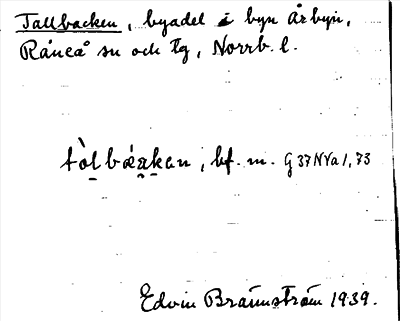 Tallbacken, byadel i byn Årbyn,
Råneå sn och tg, Norrb. l.
tòl̠bæ̀z̠k̠an, bf. m. G 37 NVa1, 73
Edvin Brännström 1939.